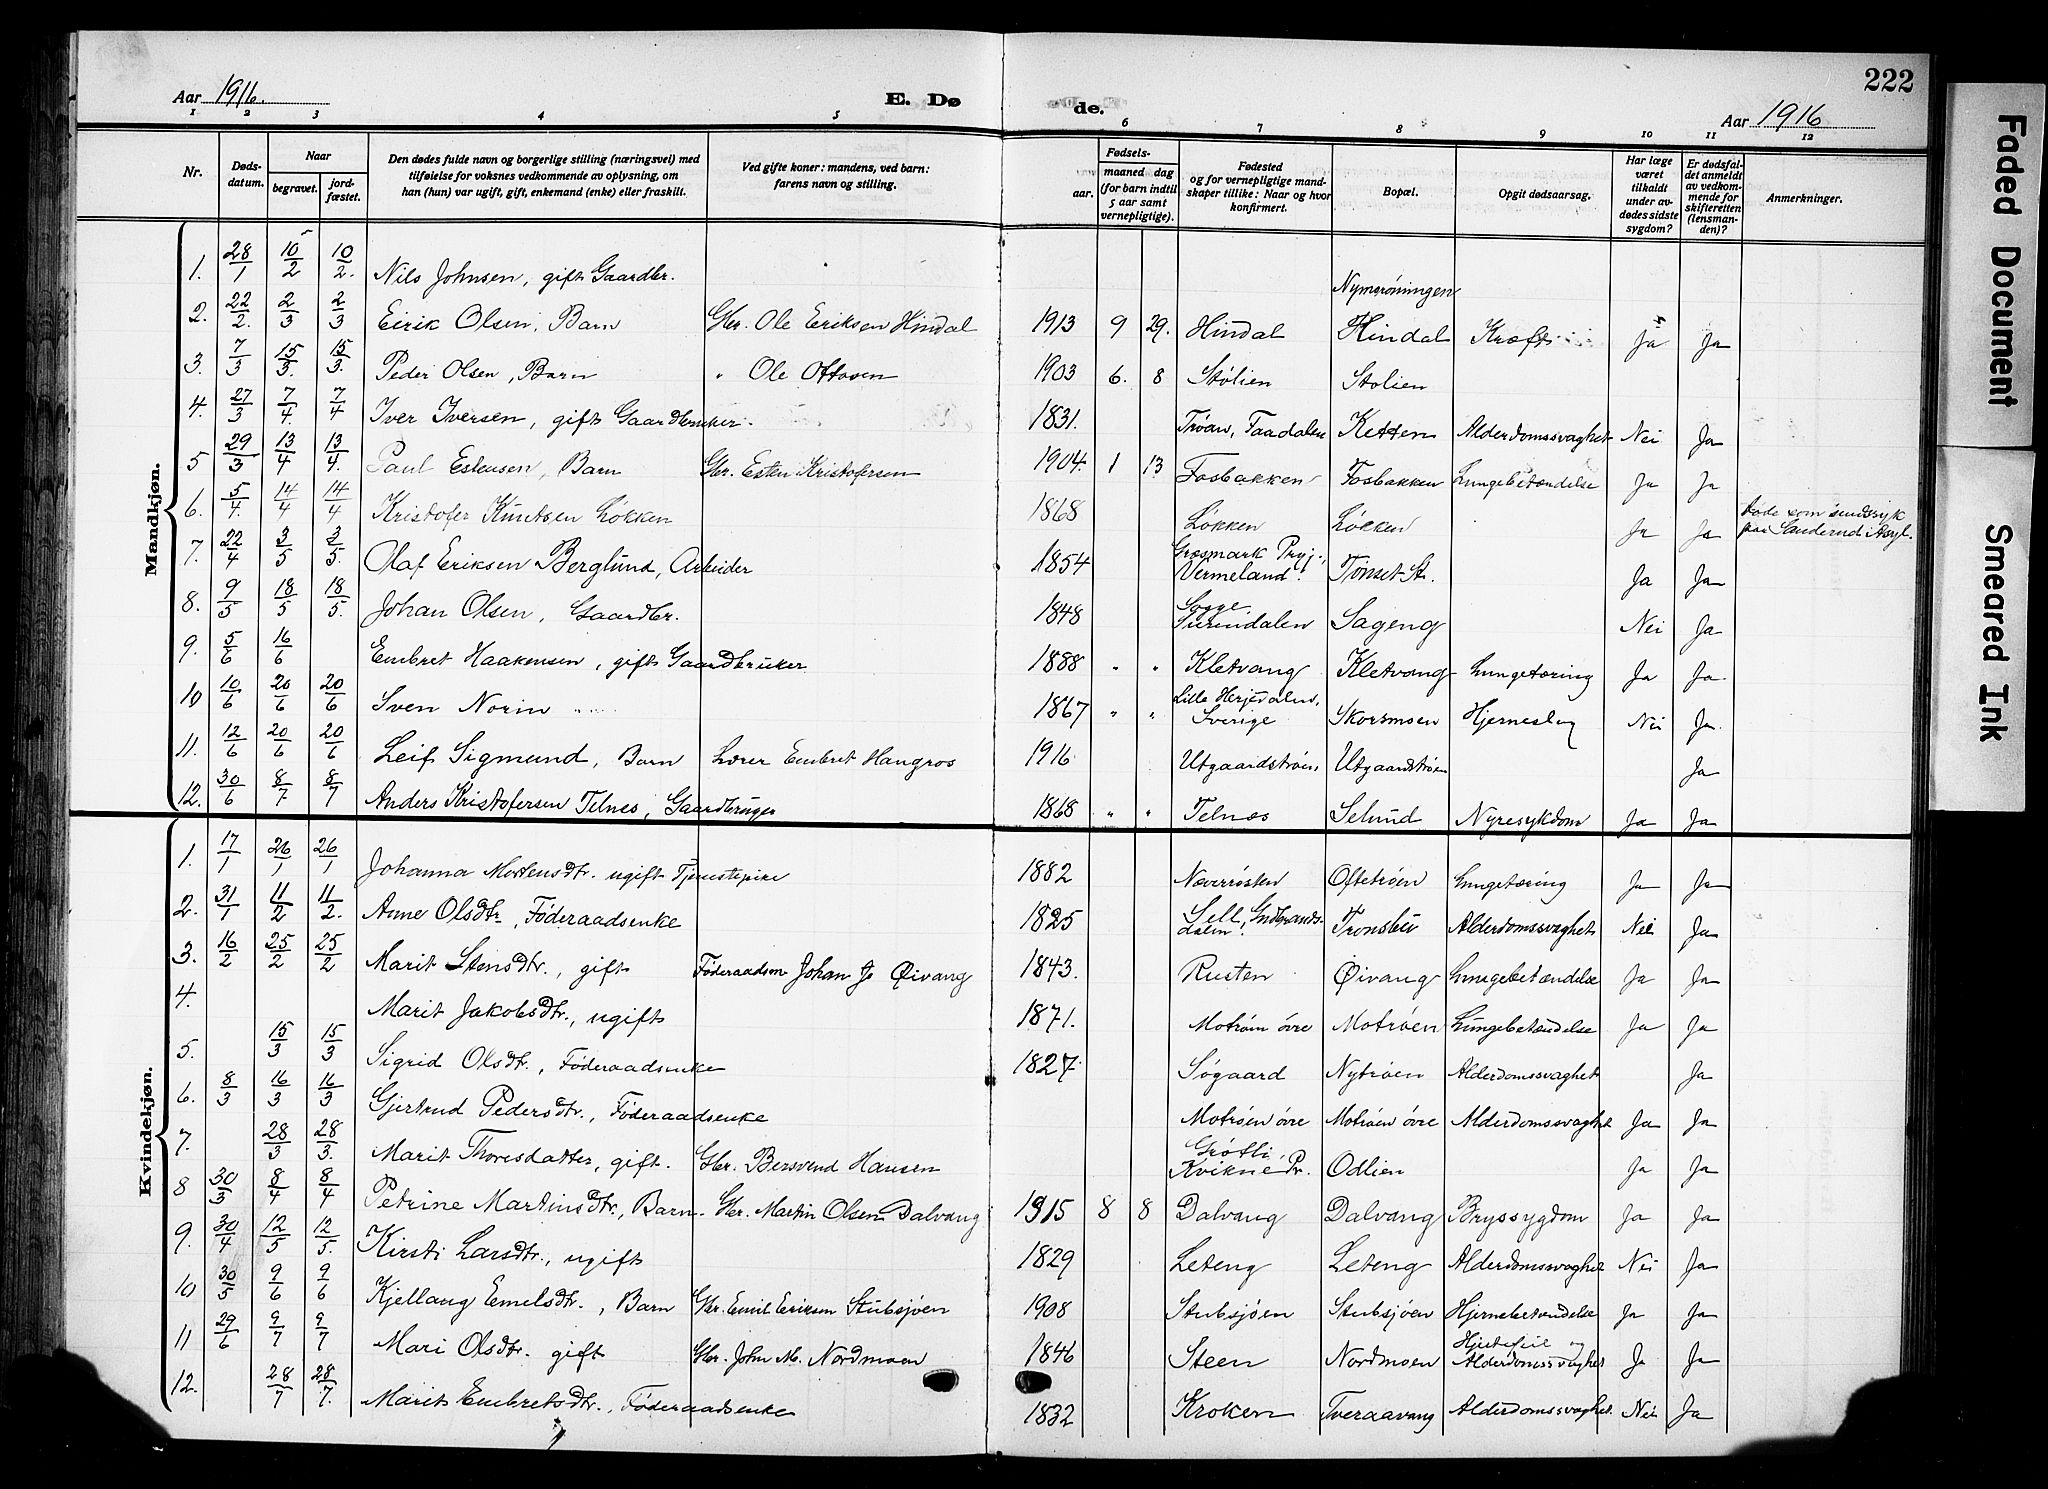 222
Aar 1916.
E. Døde.
Aar 1916
1 2 3 4 5 6 7 8 9 10 11 12
Nr.
Dødsdatum.
Naar
begravet.
jordfæstet.
Den dødes fulde navn og borgerlige stilling (næringsvei) med
tilføielse for voksnes vedkommende av oplysning, om
han (hun) var ugift, gift, enkemand (enke) eller fraskilt.
Ved gifte koner: mandens, ved barn:
farens navn og stilling.
Fødsels-
aar.
maaned dag
(for barn indtil
5 aar samt
vernepligtige).
Fødested
og for vernepligtige mandskaper tillike: Naar og hvor
konfirmert.
Bopæl.
Opgit dødsaarsag.
Har læge
været
tilkaldt
under avdødes sidste
sygdom?
Er dødsfaldet anmeldt
av vedkommende for
skifteretten
(lensmanden)?
Anmerkninger.
Mandkjøn.
1. 28/1 10/2 10/2. Nils Johnsen, gift Gaardbr. Nymoröningen
2. 22/2. 2/3 2/3 Eirik Olsen, Barn Gbr. Ole Eriksen Hindal 1913 9 29. Hindal Hindal Kræft Ja Ja
3. 7/3 15/3. 15/3. Peder Olsen, Barn " Ole Ottosen 1903 6. 8 Stølien Stolien
4. 27/3 7/4. 7/4 Iver Iversen, gift Gaardbruker. 1831. Trøan, Faadalen Ketten Alderdomssvaghet Nei Ja
5 29/3 13/4 13/4. Paul Estensen, Barn Gbr. Esten Kristofersen 1904. 1 13 Fosbakken Fosbakken Lungebetændelse Ja Ja
6. 5/4. 14/4 14/4 Kristofer Knutsen Løkken 1868 Løkken Løkken Ja Ja døde som sindssyk paa Sanderud Asyl.
7. 22/4 3/5 3/5. Olaf Eriksen Berglund, Arbeider 1854 Græsmark Prgj., Vermeland. Tönset St. Ja Ja
8. 9/5 18/5 18/5. Johan Olsen, Gaardbr. 1848 Surendalen Sageng Nei Ja
9. 5/6 16/6 Embret Haakensen, gift Gaardbruker 1888 " " Kletvang Kletvang Lungetæring Ja Ja
10 10/6 20/6 20/6 Sven Norin " 1867 " " Lille Herjedalen, Sverige Skorsmoen Hjerneslag Nei Ja.
11. 12/6 20/6 20/6 Leif Sigmund, Barn Lærer Embret Hangros 1916 Utgaardstrøen, Utgaardstrøen Ja
12. 30/6 8/7 8/7 Anders Kristofersen Telnes, Gaardbruger 1868 " " Telnes Selund Nyresykdom Ja Ja
Kvindekjøn.
1. 17/1 26/1 26/1 Johanna Mortensdtr. ugift Tjenestepike 1882 Næverrøsten Oftetrøen Lungetæring Ja Ja
2. 31/1 11/2 11/2. Anne Olsdtr., Föderaadsenke 1825 Sell, Gudbrandsdalen. Tronsbu Alderdomssvaghet Nei Ja
3. 16/2 25/2 25/2 Marit Stensdtr., gift Föderaadsm Johan Js Øivang 1843. Rusten Øivang Lungebetændelse Ja Ja
4. Marit Jakobsdtr., ugift 1871. Motrøen øvre Motrøen Lungebetændelse Ja Ja
5. 15/3 15/3 Sigrid Olsdtr., Föderaadsenke 1827. Søgaard Nytrøen Alderdomssvaghet Ja
6. 8/3 16/3 16/3 Gjertrud Pedersdtr., Föderaadsenke Motrøen øvre Motrøen øvre Alderdomssvaghet Ja Ja
7. 28/3 28/3. Marit Thoresdatter, gift. Gbr. Bersvend Hansen Grøtli, Kvikne Pr. Odlien Ja Ja
8 30/3 8/4 8/4 Petrine Martinsdtr., Barn. Gbr. Martin Olsen Dalvang 1915 8 8 Dalvang Dalvang Bryssygdom Ja Ja
9. 30/4 12/5 12/5. Kirsti Larsdtr., ugift 1829 Leteng Leteng Alderdomssvaghet Nei Ja
10 30/5 9/6 9/6 Kjellaug Emelsdtr., Barn Gbr. Emil Eriksen Stubsjøen 1908 Stubsjøen Stubsjøen Hjernebetændelse Ja Ja
11 29/6 9/7 9/7 Mari Olsdtr. gift Gbr. John M. Nordmoen 1846 Steen Nordmoen Hjertefeil og Alderdomssvaghet Ja Ja
12. 28/7 28/7. Marit Embretsdtr., Föderaadsenke 1832 Kroken Tveraavang Alderdomssvaghet Nei Ja
Faded Document
Smeared Ink